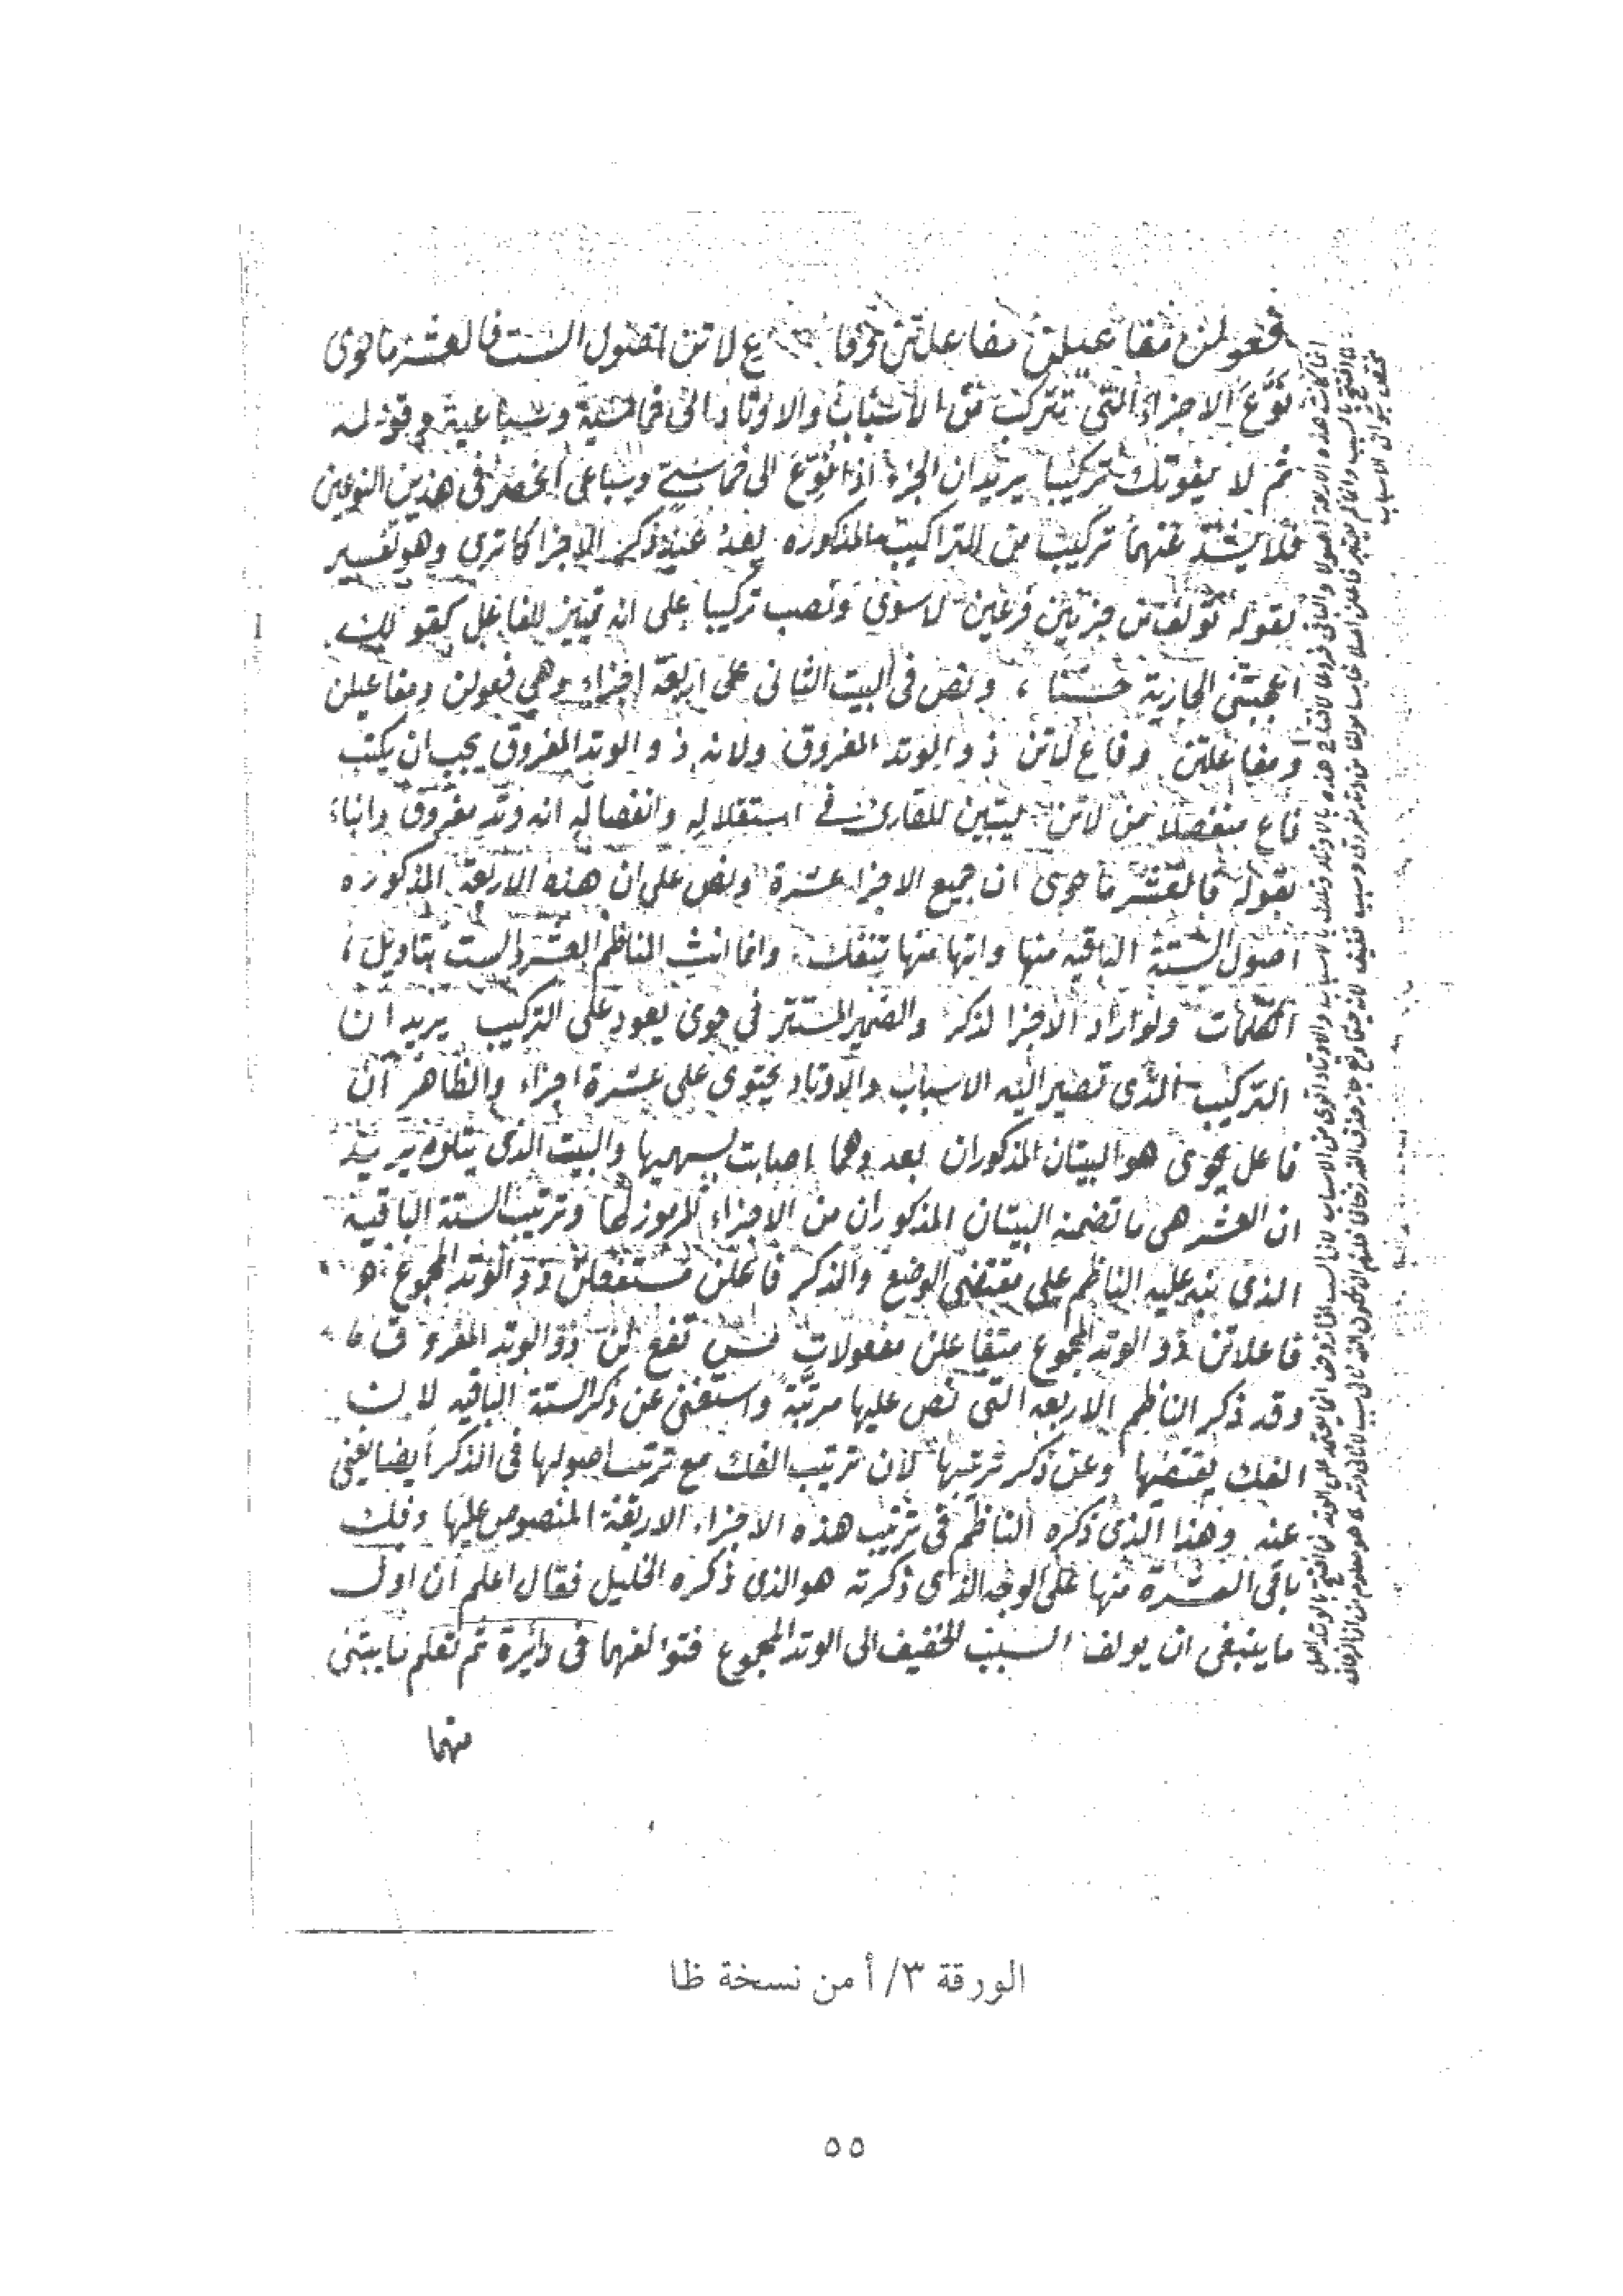 فعولن مفاعيلن مفاعلتن وفا ع لاتن اصول الست فالعشر ما حوى
نوع الاجزاء التي تتركب من الاسباب والاوتاد الى خماسية وسباعية وقوله
ثم لا يفوتك تركيبا يريد ان الجزء اذا نوع الى خماسي وسباعي انحصر في هذين النوعين
فلا يشذ عنهما تركيب من التراكيب المذكوره بعد عند ذكر الاجزا كما ترى وهو تفسير
لقوله تولف من جزئين فرعين لا سوى ونصب تركيبا على انه تمييز للفاعل كقولك
اعجبتني الجارية حسنا ، ونص في البيت الثاني على اربعة اجزاء وهي فعولن ومفاعيلن
ومفاعلتن وفاع لاتن ذو الوتد المفروق ولانه ذو الوتد المفروق يجب ان يكتب
فاع منفصلا من لاتن ليتبين للقارئ في استقلاله وانفصاله انه وتد مفروق وانباء
بقوله فالعشر ما حوى ان جميع الاجزا عشرة ونص على ان هذه الاربعة المذكوره
اصول الستة الباقيه منها وانها منها تنفك وانما انث الناظم العشر والست بتاويل
الكلمات ولو اراد الاجزا لذكر والضمير المستتر في حوى يعود على التركيب يريد ان
التركيب الذي تصير اليه الاسباب والاوتاد يحتوى على عشرة اجزاء والظاهر ان
فاعل يحوى هو البيتان المذكوران بعد وهما اصابت بسهميها والبيت الذي يتلوه يريد
ان العشر هي ما تضمنه البيتان المذكوران من الاجزاء المرموز لها وترتيب الستة الباقية
الذي نبه عليه الناظم على مقتضى الوضع والذكر فاعلن مستفعلن ذو الوتد المجموع
فاعلاتن ذو الوتد المجموع متفاعلن مفعولات مس تفع لن ذو الوتد المفروق
وقد ذكر الناظم الاربعه التي نص عليها مرتبة واستغنى عن ذكر الستة الباقيه لان
الفك يقتضيها وعن ذكر ترتيبها لان ترتيب الفك مع ترتيب اصولها في الذكر ايضا يغني
عنه وهذا الذي ذكره الناظم في ترتيب هذه الاجزاء الاربعة المنصوص عليها وفك
باقي العشرة منها على الوجه الذي ذكرته هو الذي ذكره الخليل فقال اعلم ان اول
ما ينبغي ان يولف السبب الخفيف الى الوتد المجموع فتؤلفهما في دائرة ثم لتعلم ما يبتنى
منهما
الورقة ٣/ أ من نسخة ظا
٥٥